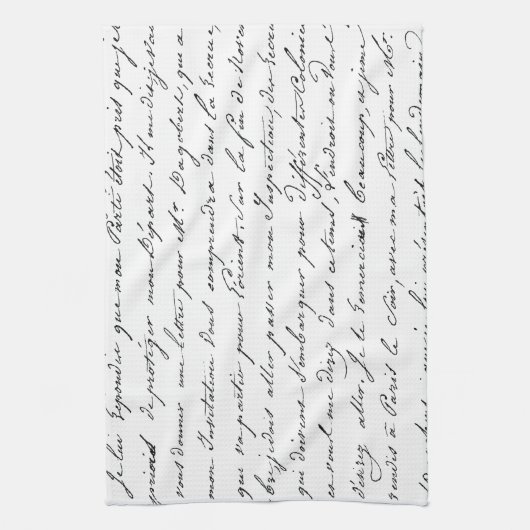 Je lui répondis que mon Parti étoit pris que je
priois de protéger mon Départ. Il me dit, je vais
vous donner une lettre pour Mr. Dagobert, qui a
mon Invitation vous comprendra dans la Recrue,
qui va partir pour L'orient, sur la fin de
je dois aller passer mon Inspection, des Recrues
qui doivent S'embarquer pour différentes Colonies
et vous me direz dans ce tems, L'endroit ou vous
désirez aller. Je le Remerciai beaucoup, et je me
rendis à Paris le Soir, avec ma Lettre pour Mr.